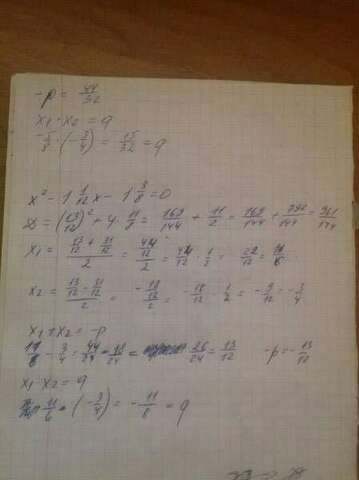 -p = 44/32
x₁ · x₂ = q
-5/8 · (-3/4) = 15/32 = q
x² - 1 1/12 x - 1 3/8 = 0
D = (13/12)² + 4 · 11/8 = 169/144 + 11/2 = 169/144 + 792/144 = 961/144
x₁ = (13/12 + 31/12)/2 = (44/12)/2 = 44/12 · 1/2 = 22/12 = 11/6
x₂ = (13/12 - 31/12)/2 = (-18/12)/2 = -18/12 · 1/2 = -9/12 = -3/4
x₁ + x₂ = -p
11/6 - 3/4 = 44/24 - 18/24 = 26/24 = 13/12 -p = -13/12
x₁ · x₂ = q
11/6 · (-3/4) = -11/8 = q